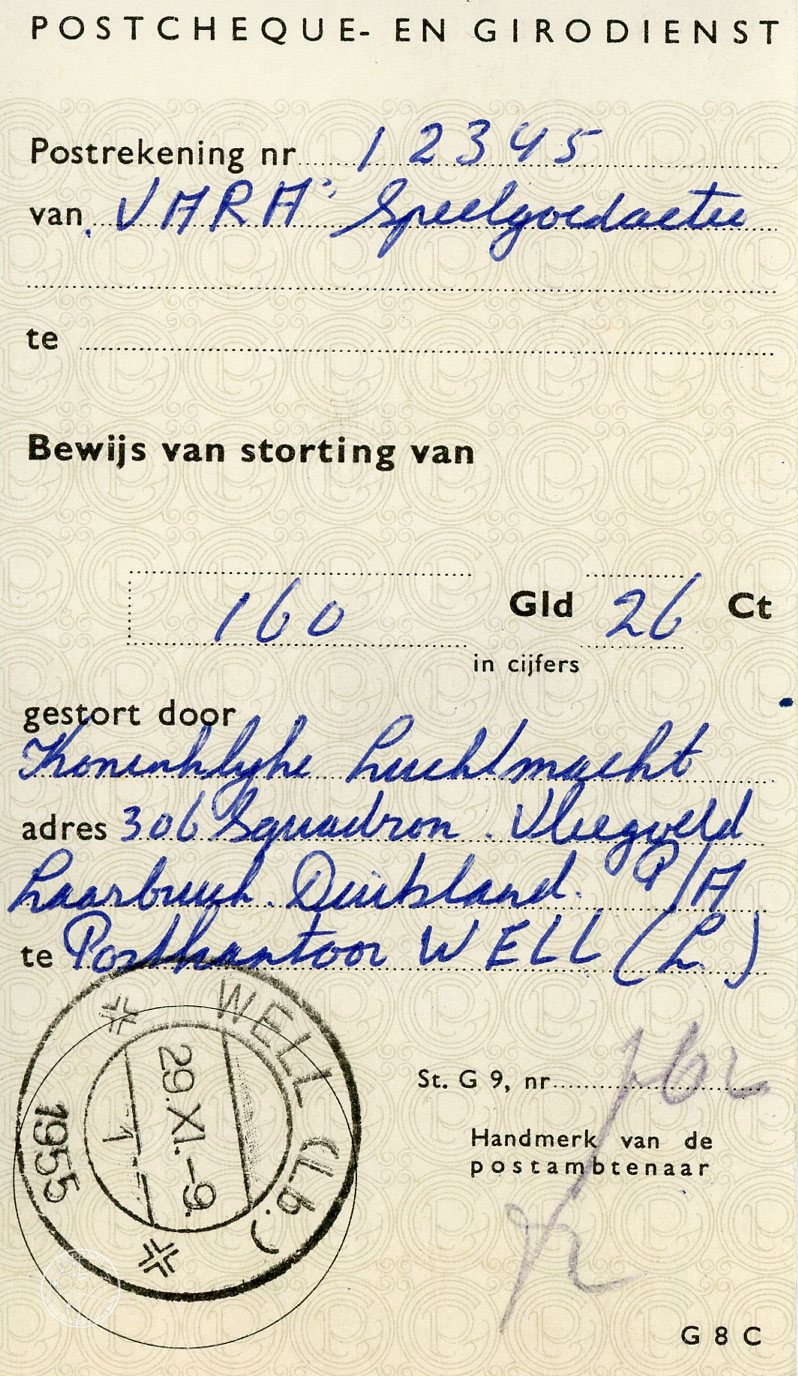 POSTCHEQUE- EN GIRODIENST
Postrekening nr 12345
van "VARA" Speelgoedactie
te
Bewijs van storting van
160 Gld 26 Ct
in cijfers
gestort door
Koninklijke Luchtmacht
adres 306 Squadron. Vliegveld
Laarbruch. Duitsland. P/A
te Postkantoor WELL (L.)
WELL (Lb.)
29.XI.-9.
1955
St. G 9, nr
Handmerk van de
postambtenaar
G 8 C